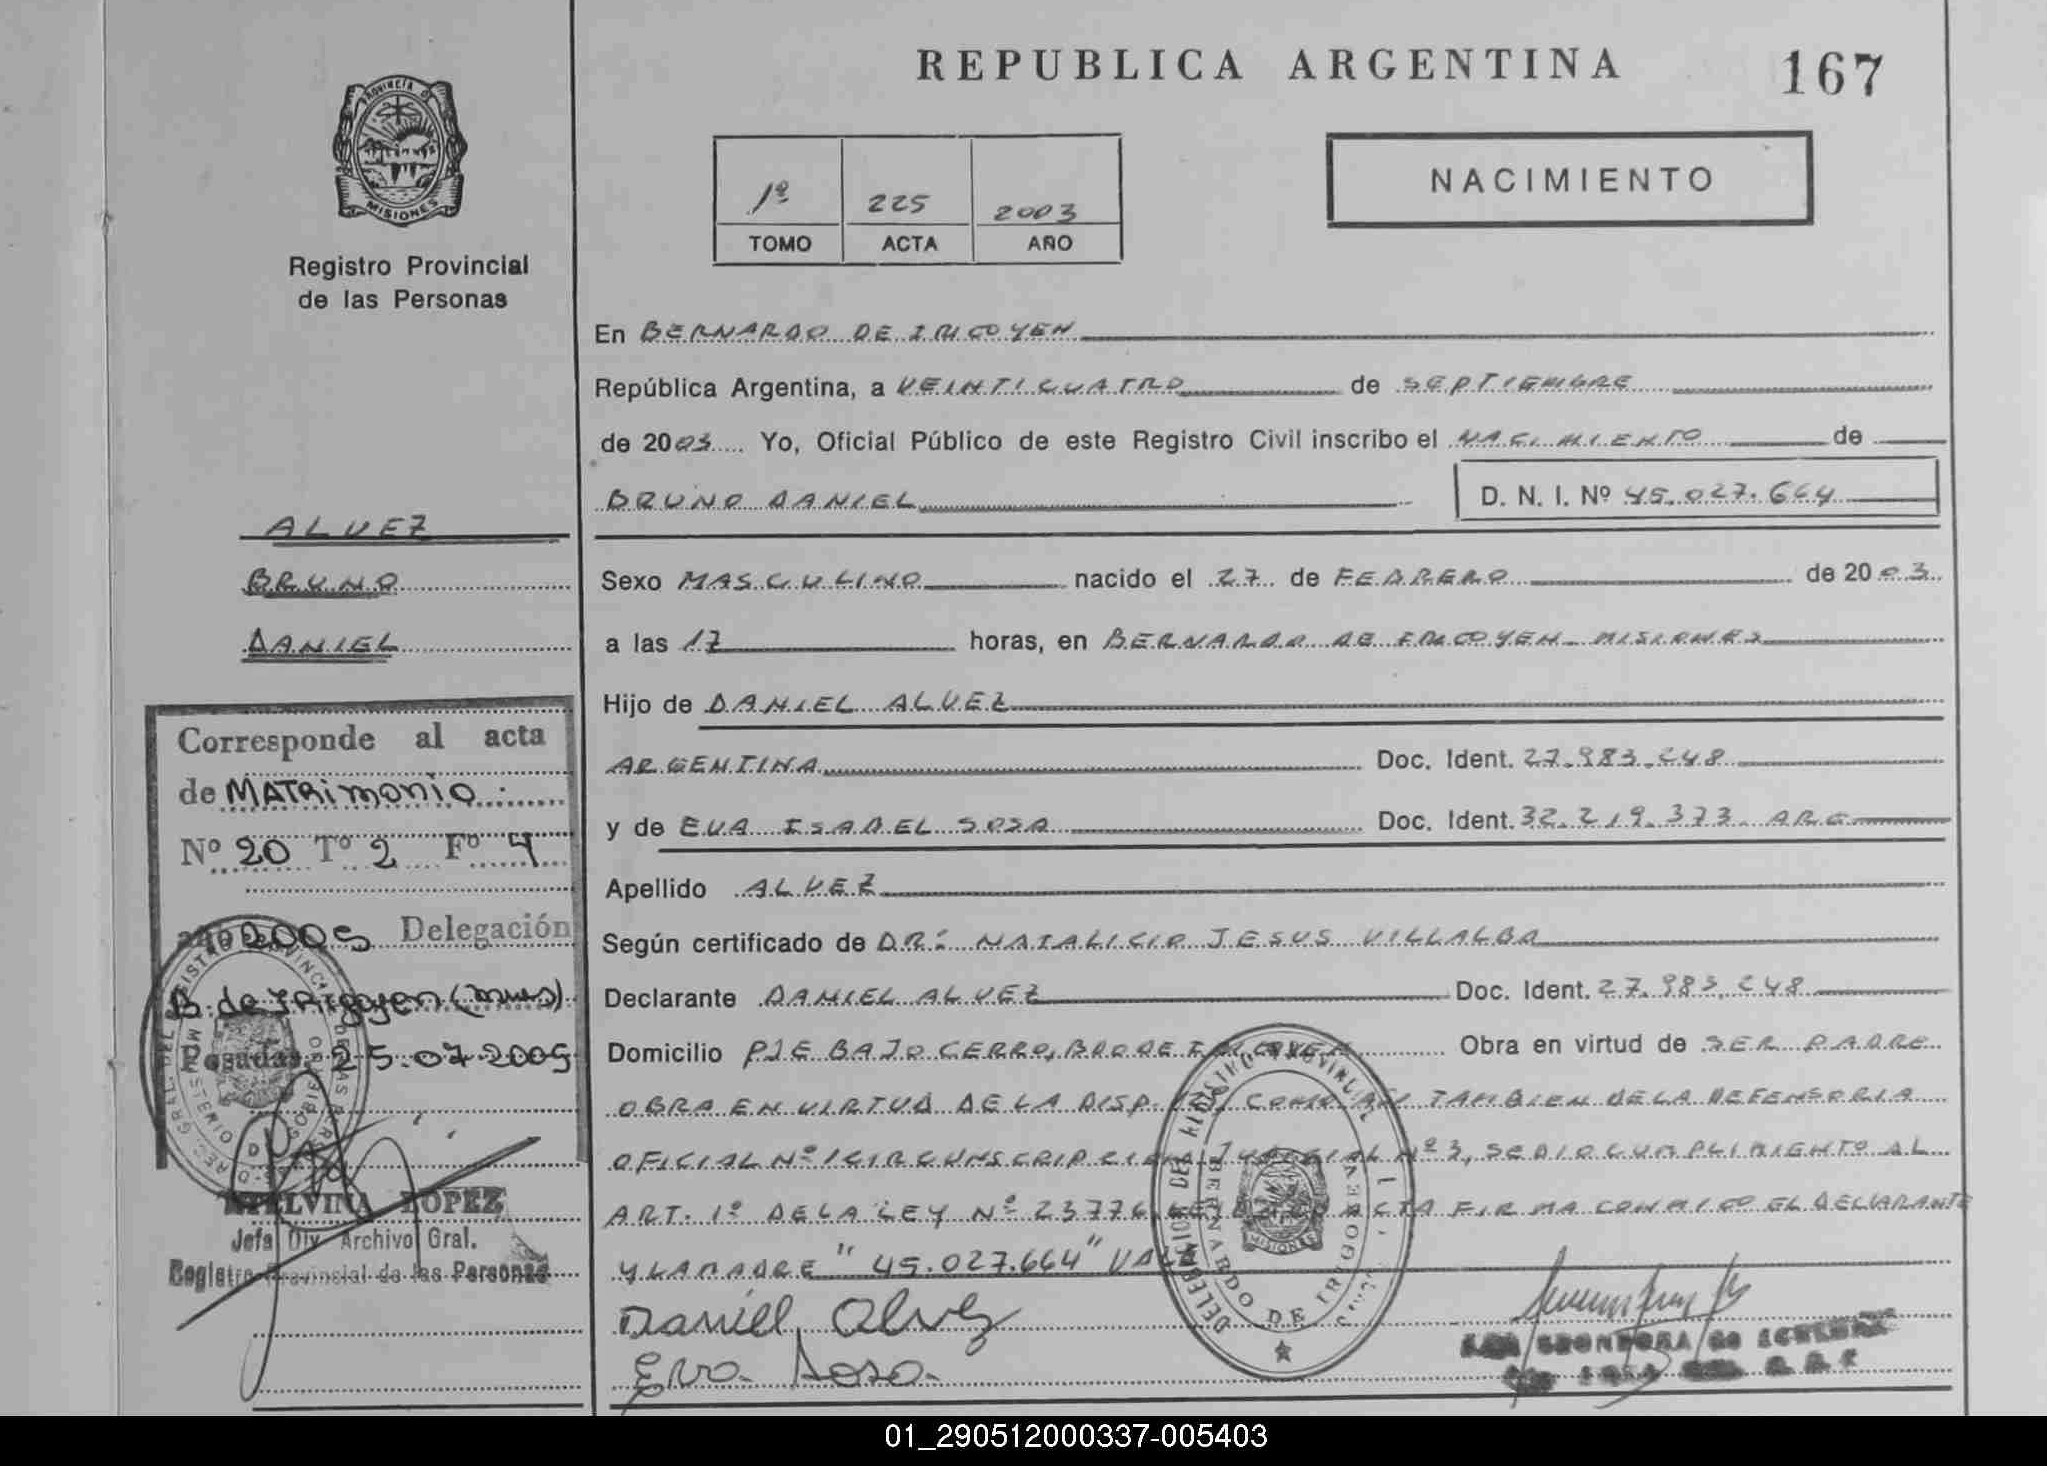 REPUBLICA ARGENTINA
167
PROVINCIA DE
MISIONES
Registro Provincial
de las Personas
1º 225 2003
TOMO ACTA AÑO
NACIMIENTO
En BERNARDO DE IRIGOYEN
República Argentina, a VEINTICUATRO de SEPTIEMBRE
de 2003 Yo, Oficial Público de este Registro Civil inscribo el NACIMIENTO de
BRUNO DANIEL D. N. I. Nº 45.027.664
Sexo MASCULINO nacido el 27 de FEBRERO de 2003
a las 17 horas, en BERNARDO DE IRIGOYEN - MISIONES
Hijo de DANIEL ALVEZ
ARGENTINA Doc. Ident. 27.983.248
y de EVA ISABEL SOSA Doc. Ident. 32.219.373. ARG
Apellido ALVEZ
Según certificado de DR: NATALICIO JESUS VILLALBA
Declarante DANIEL ALVEZ Doc. Ident. 27.983.248
Domicilio PJE BAJO CERRO, BDO DE IRIGOYEN Obra en virtud de SER PADRE
OBRA EN VIRTUD DE LA DISP. COMO TAMBIEN DE LA DEFENSORIA
OFICIAL Nº 1 CIRCUNSCRIPCION JUDICIAL Nº 3, SE DIO CUMPLIMIENTO AL
ART. 1º DE LA LEY Nº 23776. ACTA FIRMA CONMIGO EL DECLARANTE
Y LA MADRE "45.027.664" VALE
Daniel Alvez
Eva Sosa
DELEGACION DEL REGISTRO PROVINCIAL
BERNARDO DE IRIGOYEN
MISIONES
ALVEZ
BRUNO
DANIEL
Corresponde al acta
de MATRimoniO
Nº 20 Tº 2 Fº 4
año 2005 Delegación
B. de IRigoyen (mnes)
Posadas, 25.07.2005
LOPEZ
Jefa Div. Archivo Gral.
Registro Provincial de las Personas
01_290512000337-005403